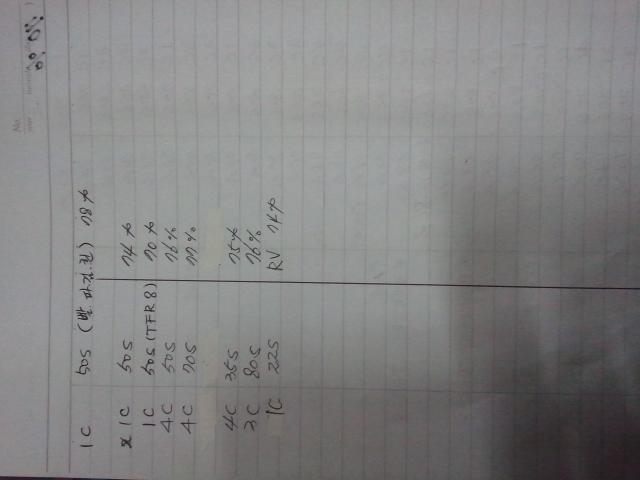 No.
1C 50S (빨.파.검.흰) 78%
※ 1C 50S 74%
1C 50S (TFR 8) 70%
4C 50S 76%
4C 70S 77%
4C 35S 75%
3C 80S 76%
1C 22S RV 74%